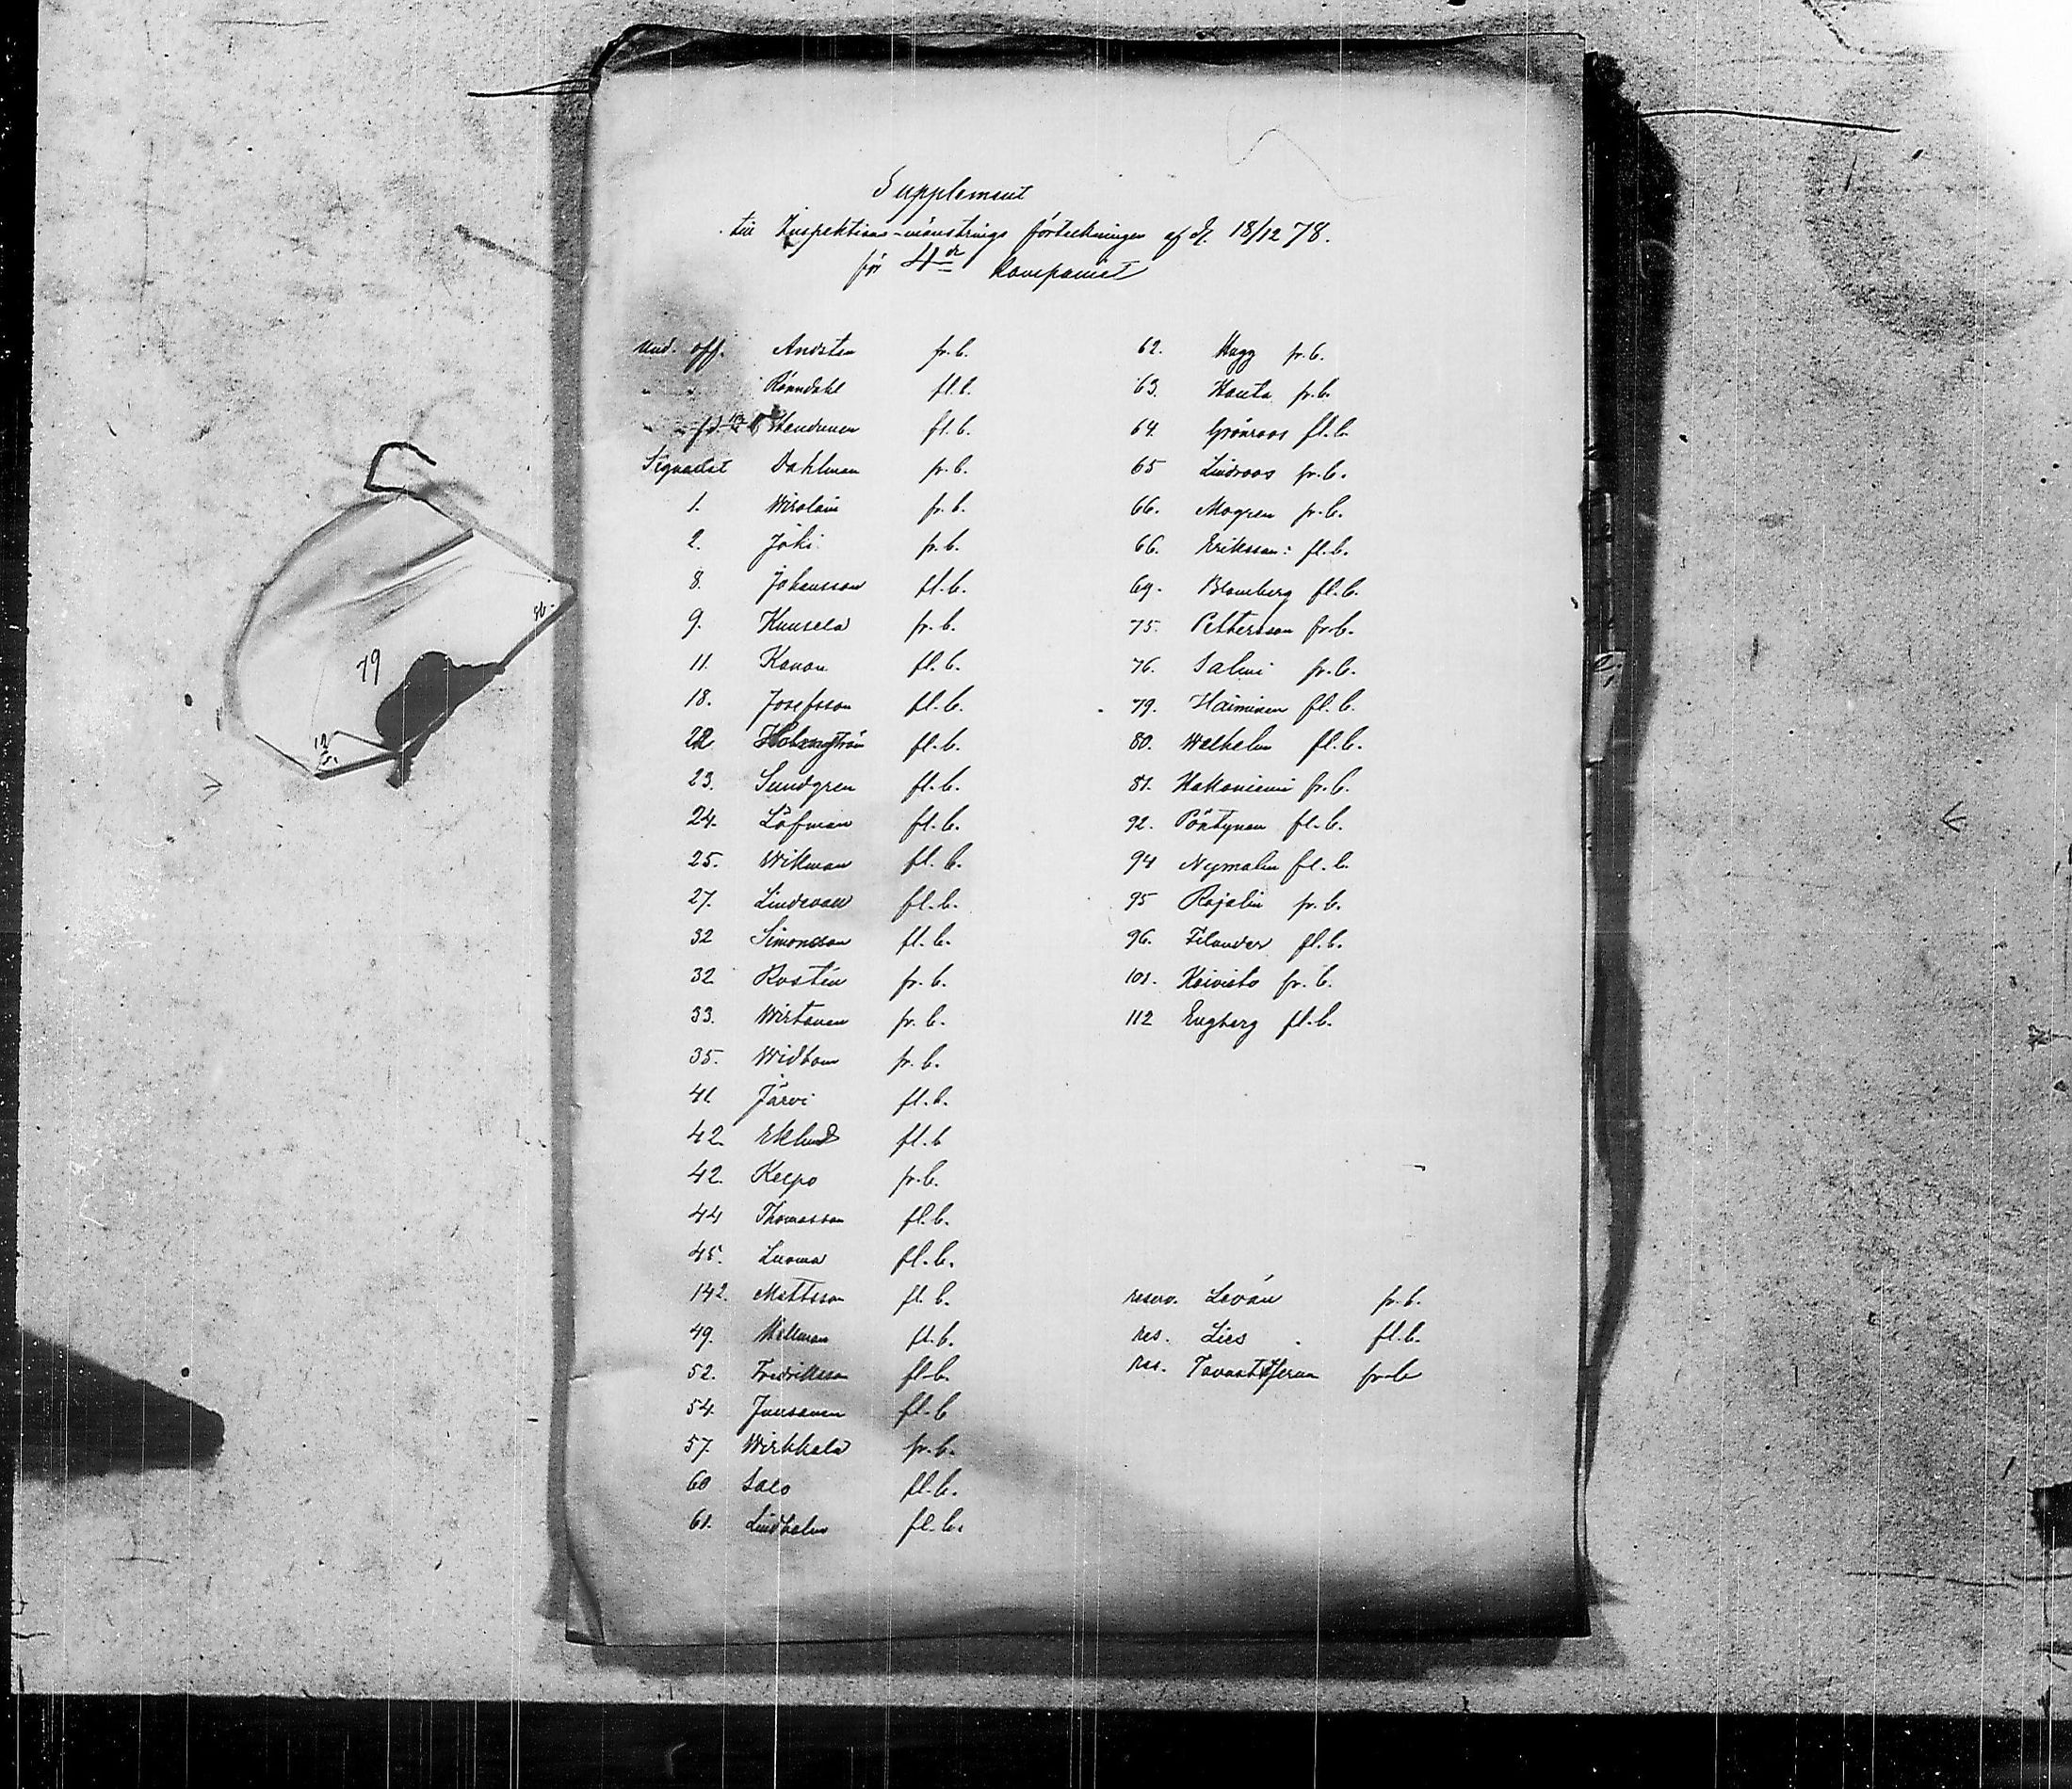 Supplement
till Inspektions-mönstrings förteckningen af d. 18/12 78.
för 4de Kompaniet
Und. off. Andsten fr. b.
" " Rönndahl fl. b.
fl. b.
Signalist Dahlman fr. b.
1. Wirolain fr. b.
2. Joki fr. b.
8. Johansson fl. b.
9. Kuusela fr. b.
11. Kanon fl. b.
18. Josefsson fl. b.
22. Holmström fl. b.
23. Sundgren fl. b.
24. Löfman fl. b.
25. Wikman fl. b.
27. Lindevall fl. b.
32 Simonsson fl. b.
32 Rostén fr. b.
33. Wirtanen fr. b.
35. Widbom fr. b.
41 Järvi fl. b.
42. Eklund fl. b
42. Keepo fr. b.
44 Thomasson fl. b.
45. Luoma fl. b.
142. Mattsson fl. b.
49. Hellman fl. b.
52. Fredriksson fl. b.
54. Juusanen fl. b
57. Wirkkala fr. b.
60 Salo fl. b.
61. Lindholm fl. b.
62. Hagg fr. b.
63. Hauta fr. b.
64. Grönroos fl. b.
65 Lindroos fr. b.
66. Mogren fr. b.
66. Eriksson: fl. b.
69. Blomberg fl. b.
75. Pettersson fr. b.
76. Salmi fr. b.
79. Häiminen fl. b.
80. Welhelm fl. b.
81. Hakoniemi fr. b.
92. Pöntynen fl. b.
94 Nymalm fl. b.
95 Rajalin fr. b.
96. Filander fl. b.
101. Koivisto fr. b.
112 Engberg fl. b.
reserv. Leván fr. b.
res. Lies fl. b.
res. Tavaststjerna fr. b
79